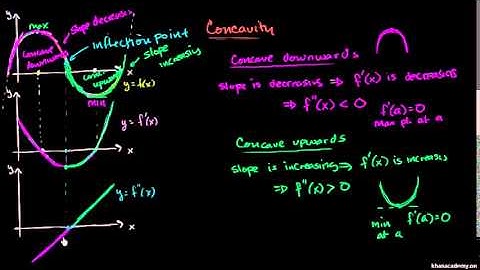 Concavity
y
max
slope decreases
Concave downward
inflection point
slope increasing
conc. upward
x
y=f(x)
min
Concave downwards
slope is decreasing ⇒ f'(x) is decreasing
⇒ f''(x) < 0
f'(a)=0
max pt. at a
y
y=f'(x)
x
Concave upwards
slope is increasing ⇒ f'(x) is increasing
⇒ f''(x) > 0
y
y=f''(x)
x
min
at a
f'(a)=0
khanacademy.or